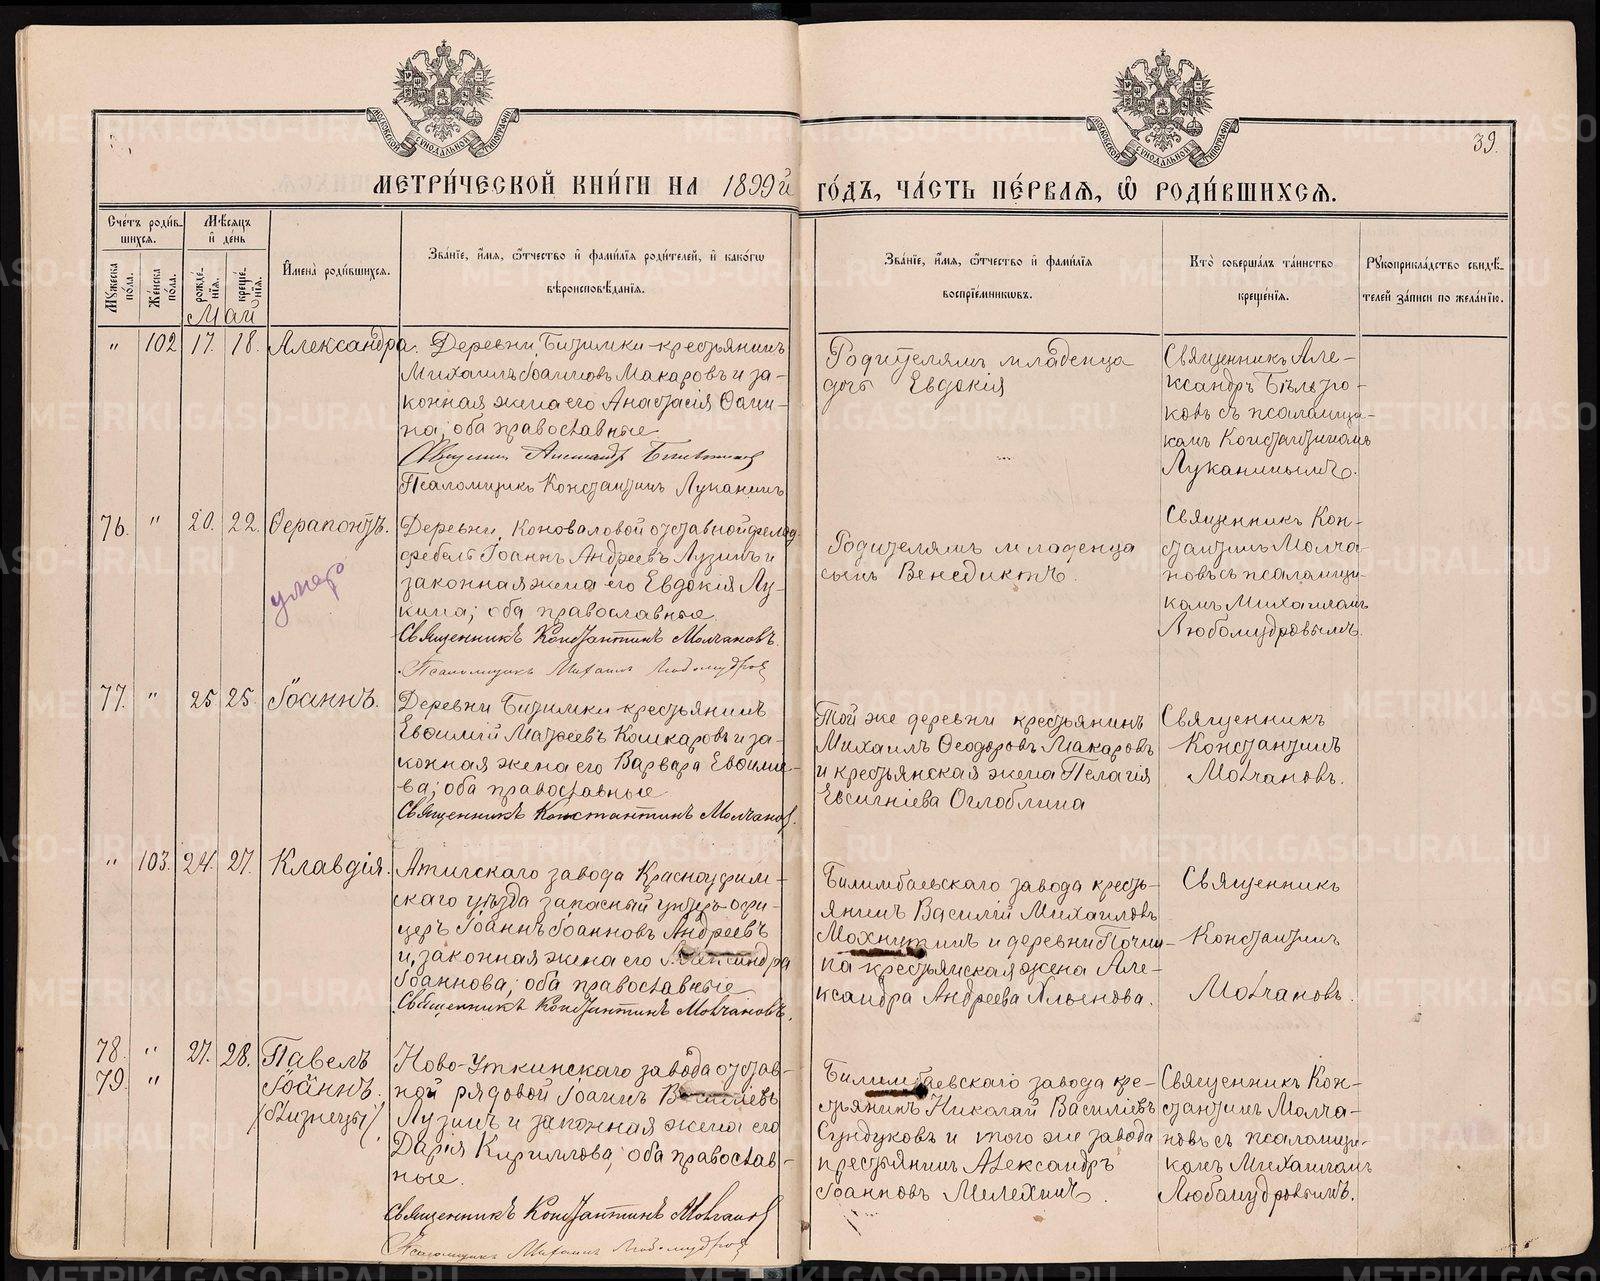 39.
МЕТРИ́ЧЕСКОЙ КНИ́ГИ НА 1899й ГО́ДЪ, ЧА́СТЬ ПЕ́РВАѦ, Ѡ҆ РОДИ́ВШИХСѦ.
Сче́тъ роди́в-
шихсѧ.
Му́жеска по́ла.
Же́нска по́ла.
Мѣ́сѧцъ
и҆ де́нь
рожде́-
нїѧ.
креще́-
нїѧ.
И҆мена̀ роди́вшихсѧ.
Зва́нїе, и҆́мѧ, ѻ҆́тчество и҆ фами́лїѧ роди́телей, и҆ како́гѡ
вѣроисповѣ́данїѧ.
Зва́нїе, и҆́мѧ, ѻ҆́тчество и҆ фами́лїѧ
воспрїе́мникѡвъ.
Кто̀ соверша́лъ та́инство
креще́нїѧ.
Рꙋкоприкла́дство свидѣ́-
телей за́писи по жела́нїю.
Май
" 102 17. 18. Александра.
Деревни Битимки крестьянинъ
Михаилъ Іоанновъ Макаровъ и за-
конная жена его Анастасія Ѳоми-
на; оба православные
Священникъ Александръ Бѣльтюковъ
Псаломщикъ Константинъ Луканинъ
Родителямъ младенца
дочь Евдокія
Священникъ Але-
ксандръ Бѣльтю-
ковъ съ псаломщи-
комъ Константиномъ
Луканинымъ.
76. " 20. 22. Ѳерапонтъ.
умеръ
Деревни Коноваловой отставной фельд-
фебель Іоаннъ Андреевъ Лузинъ и
законная жена его Евдокія Лу-
кина; оба православные
Священникъ Константинъ Молчановъ.
Псаломщикъ Михаилъ Любомудровъ
Родителямъ младенца
сынъ Венедиктъ.
Священникъ Кон-
стантинъ Молча-
новъ съ псаломщи-
комъ Михаиломъ
Любомудровымъ.
77. " 25 25. Іоаннъ.
Деревни Битимки крестьянинъ
Евѳимій Матѳеевъ Кошкаровъ и за-
конная жена его Варвара Евѳимі-
ева; оба православные
Священникъ Константинъ Молчановъ.
Той же деревни крестьянинъ
Михаилъ Ѳеодоровъ Макаровъ
и крестьянская жена Пелагія
Евсигніева Оглоблина
Священникъ
Константинъ
Молчановъ.
" 103. 24. 27. Клавдія.
Атигскаго завода Красноуфим-
скаго уѣзда запасный унтеръ-офи-
церъ Іоаннъ Іоанновъ Андреевъ
и законная жена его Александра
Іоаннова; оба православные
Священникъ Константинъ Молчановъ.
Билимбаевскаго завода кресть-
янинъ Василій Михаиловъ
Мохнуткинъ и деревни Почин-
ка крестьянская жена Але-
ксандра Андреева Ялынова.
Священникъ
Константинъ
Молчановъ.
78. " 27. 28. Павелъ
79. " Іоаннъ.
(близнецы)
Ново-Уткинскаго завода отстав-
ной рядовой Іоаннъ Васильевъ
Лузинъ и законная жена его
Дарія Кириллова; оба православ-
ные.
Священникъ Константинъ Молчановъ
Псаломщикъ Михаилъ Любомудровъ
Билимбаевскаго завода кре-
стьянинъ Николай Василіевъ
Сундуковъ и того же завода
крестьянинъ Александръ
Іоанновъ Мелехинъ.
Священникъ Кон-
стантинъ Молча-
новъ съ псаломщи-
комъ Михаиломъ
Любомудровымъ.